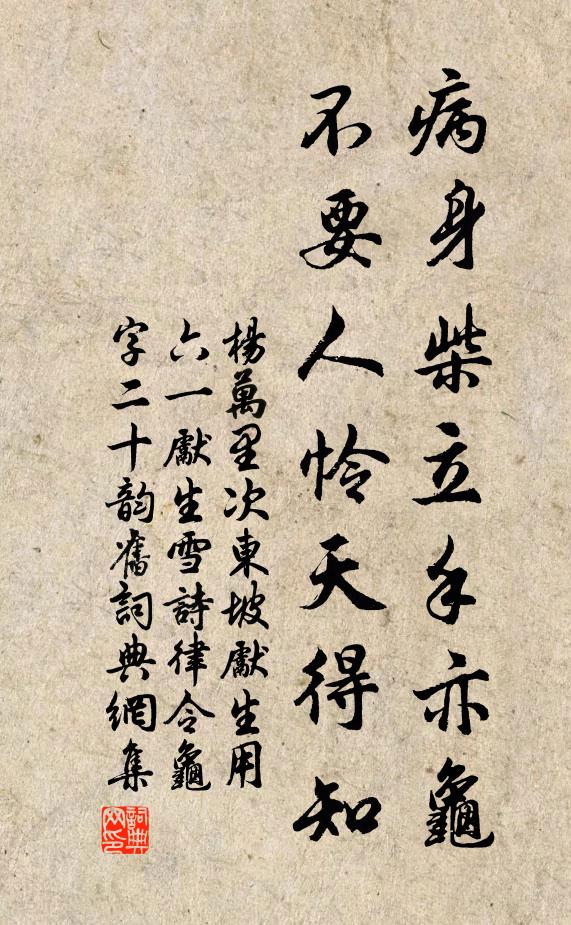 病身柴立手亦龜
不要人怜天得知
楊萬里次東坡獻生用
六一獻生雪詩律令龜
字二十韵舊詞典網集
詞典
网印